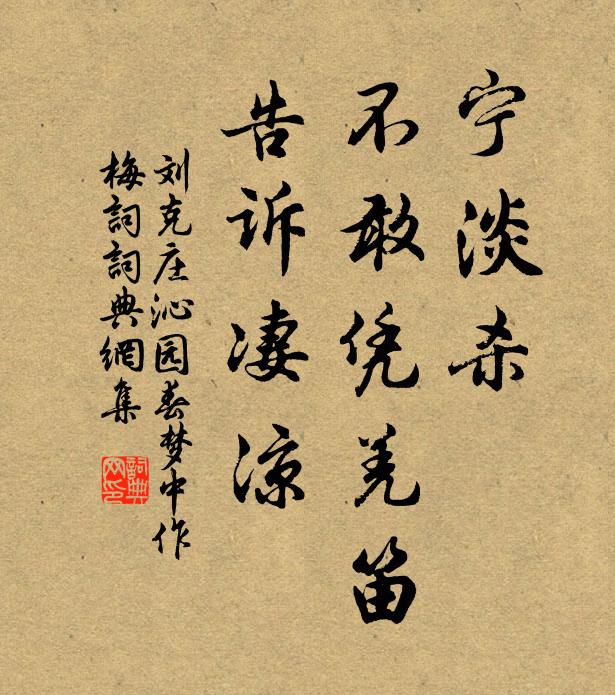 宁淡杀
不敢凭羌笛
告诉凄凉
刘克庄沁园春梦中作
梅詞詞典網集
詞典
网印